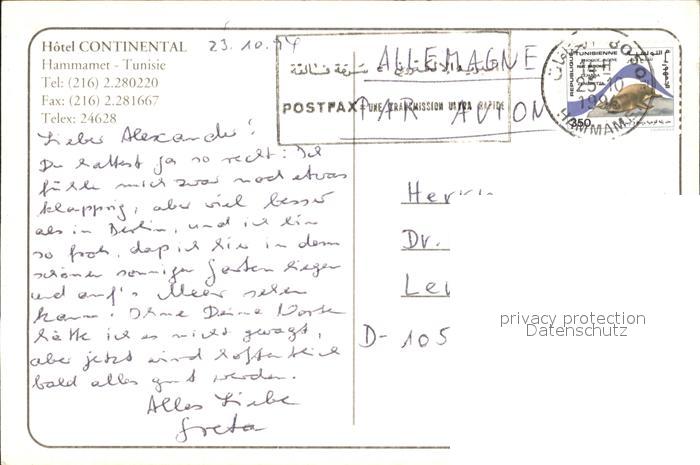 Hôtel CONTINENTAL
Hammamet - Tunisie
Tel: (216) 2.280220
Fax: (216) 2.281667
Telex: 24628
23.10.94
ALLEMAGNE
PAR AVION
POSTFAX UNE TRANSMISSION ULTRA RAPIDE
REPUBLIQUE TUNISIENNE
350
25-10
HAMMAM
Lieber Alexander!
Du hattest ja so recht: Ich
fühle mich zwar noch etwas
klapprig, aber viel besser
als in Berlin, und ich bin
so froh, daß ich hier in dem
schönen sonnigen Garten liegen
und auf's Meer sehen
kann. Ohne Deine Worte
hätte ich es nicht gewagt,
aber jetzt wird hoffentlich
bald alles gut werden.
Alles Liebe
Greta
Herrn
Dr.
Le
D-105
privacy protection
Datenschutz